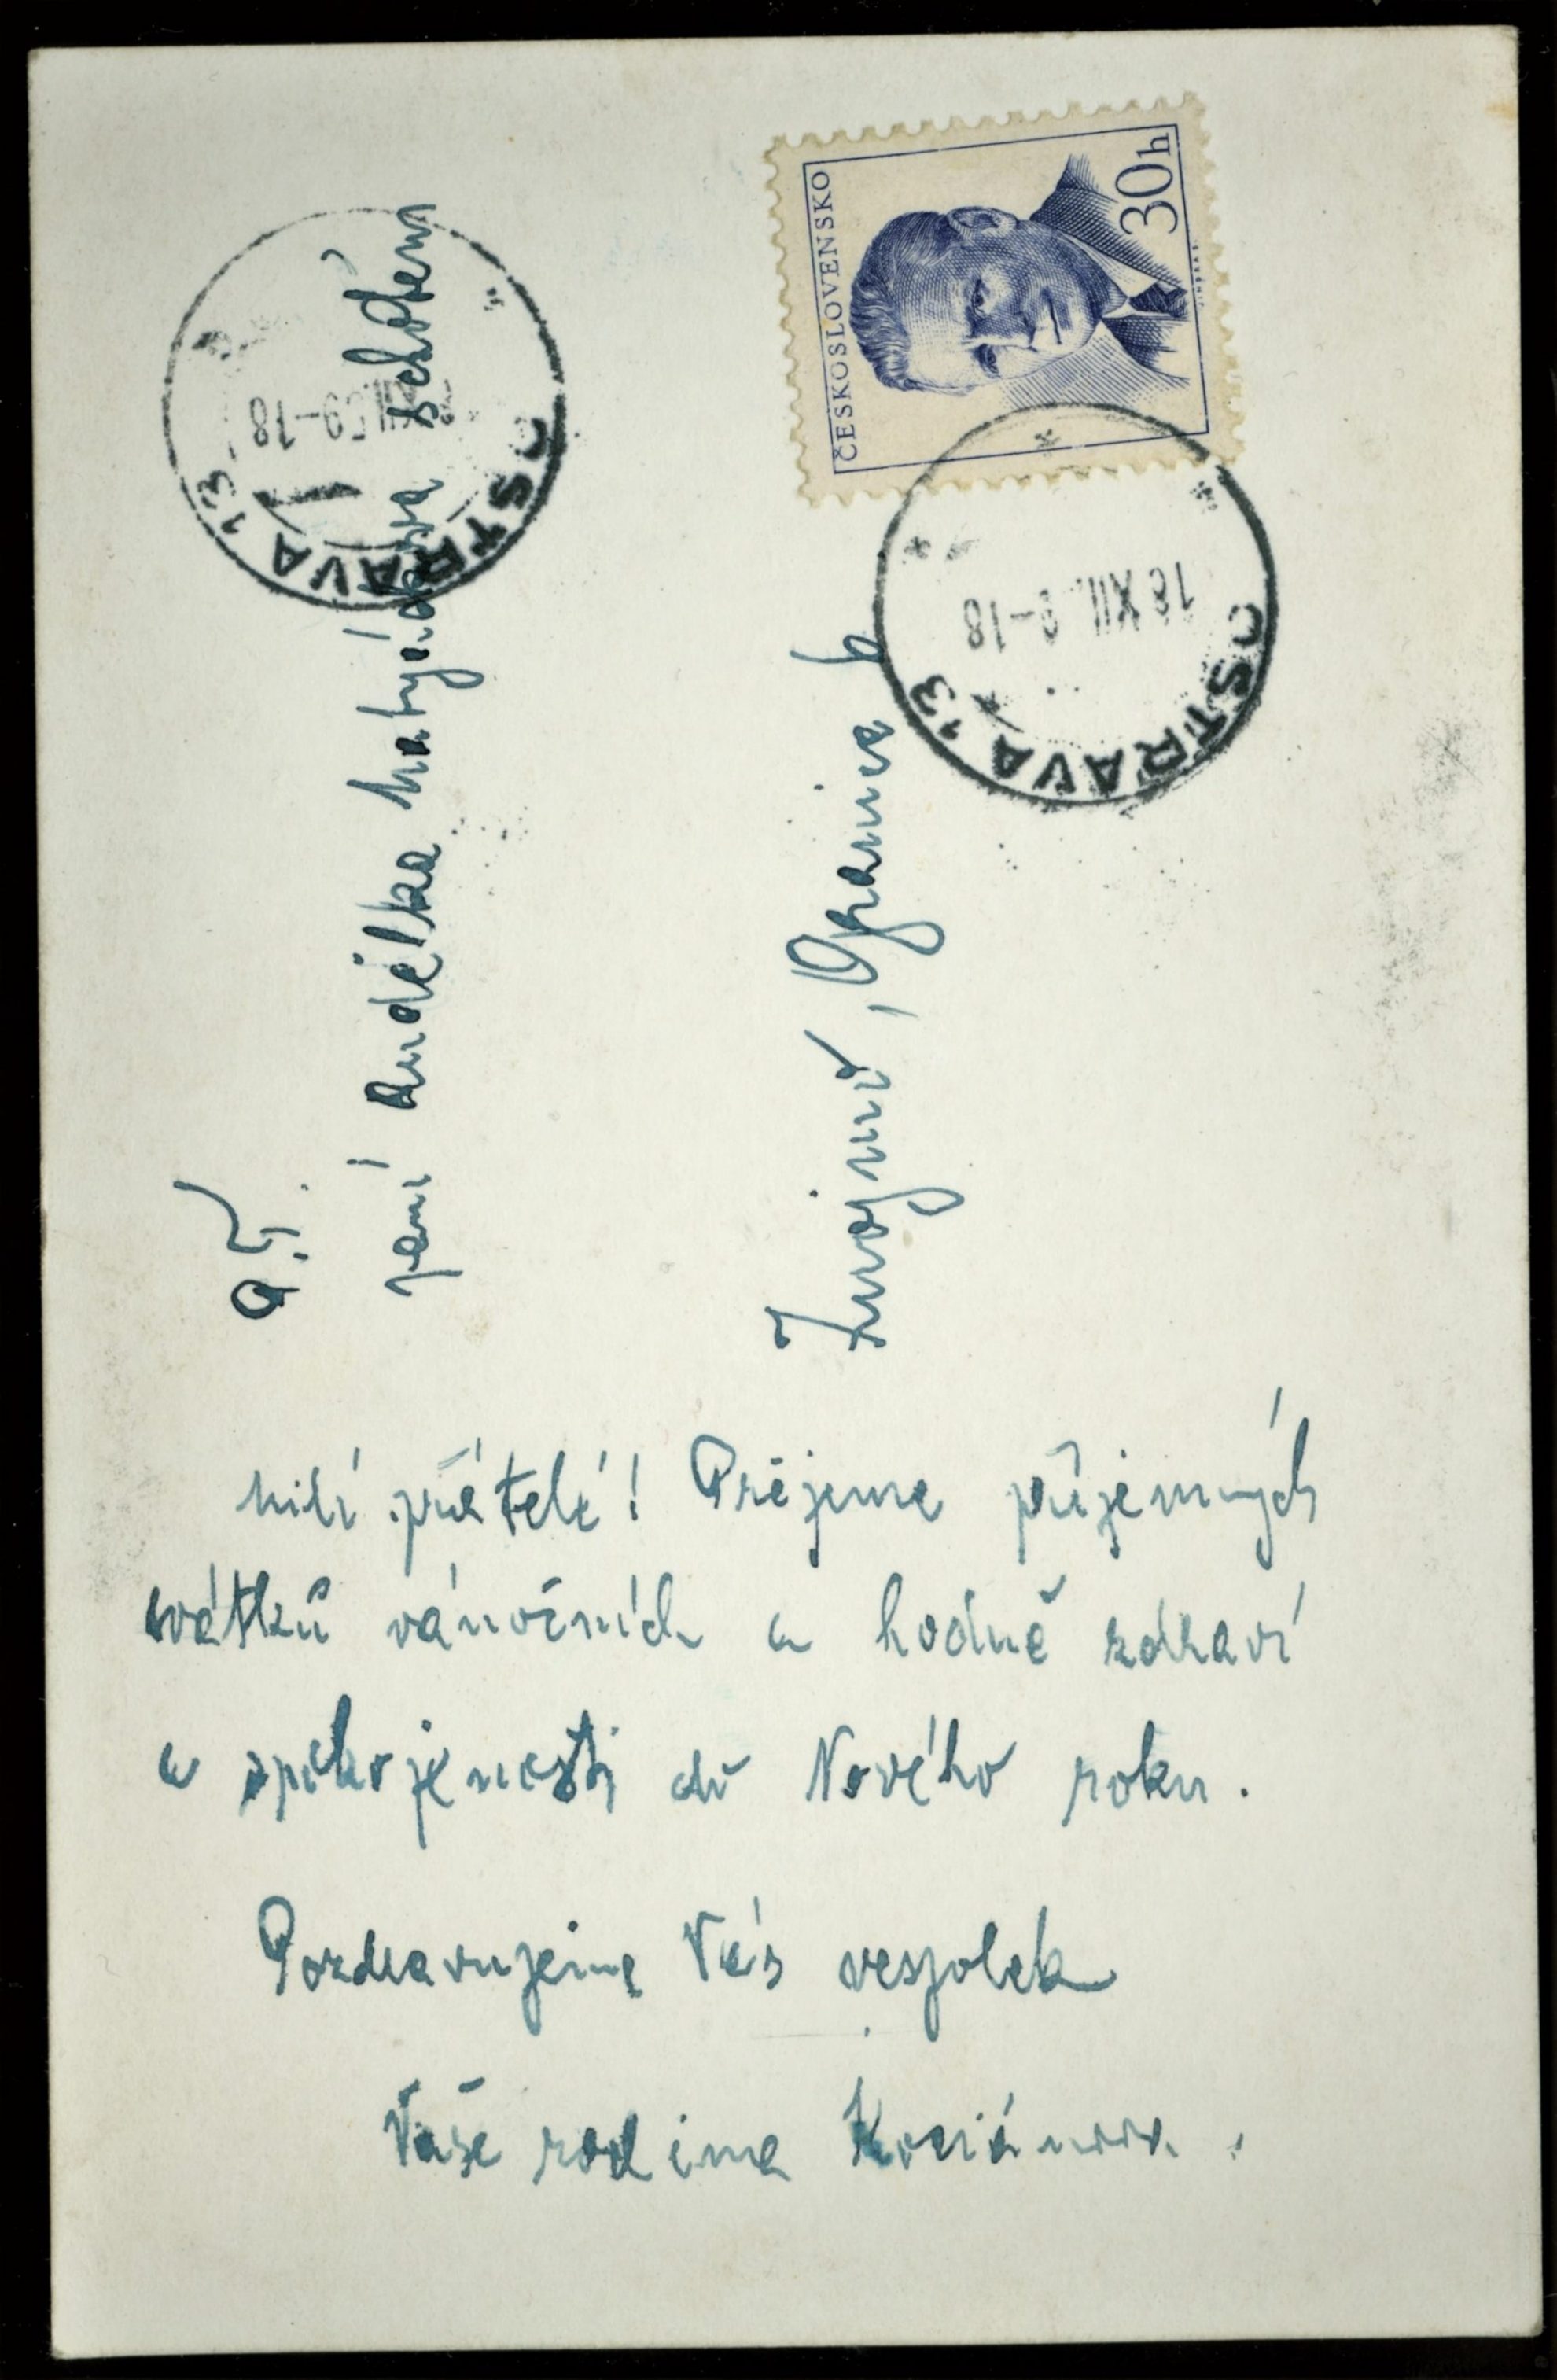 ČESKOSLOVENSKO
30h
OSTRAVA 13
XII.59-18
OSTRAVA 13
18 XII. 9-18
P.T.
paní Andělka
Znojmo,
Milí přátelé! Přejeme příjemných
svátků vánočních a hodně zdraví
a spokojenosti do Nového roku.
Pozdravujeme Vás vespolek
Vaše rodina